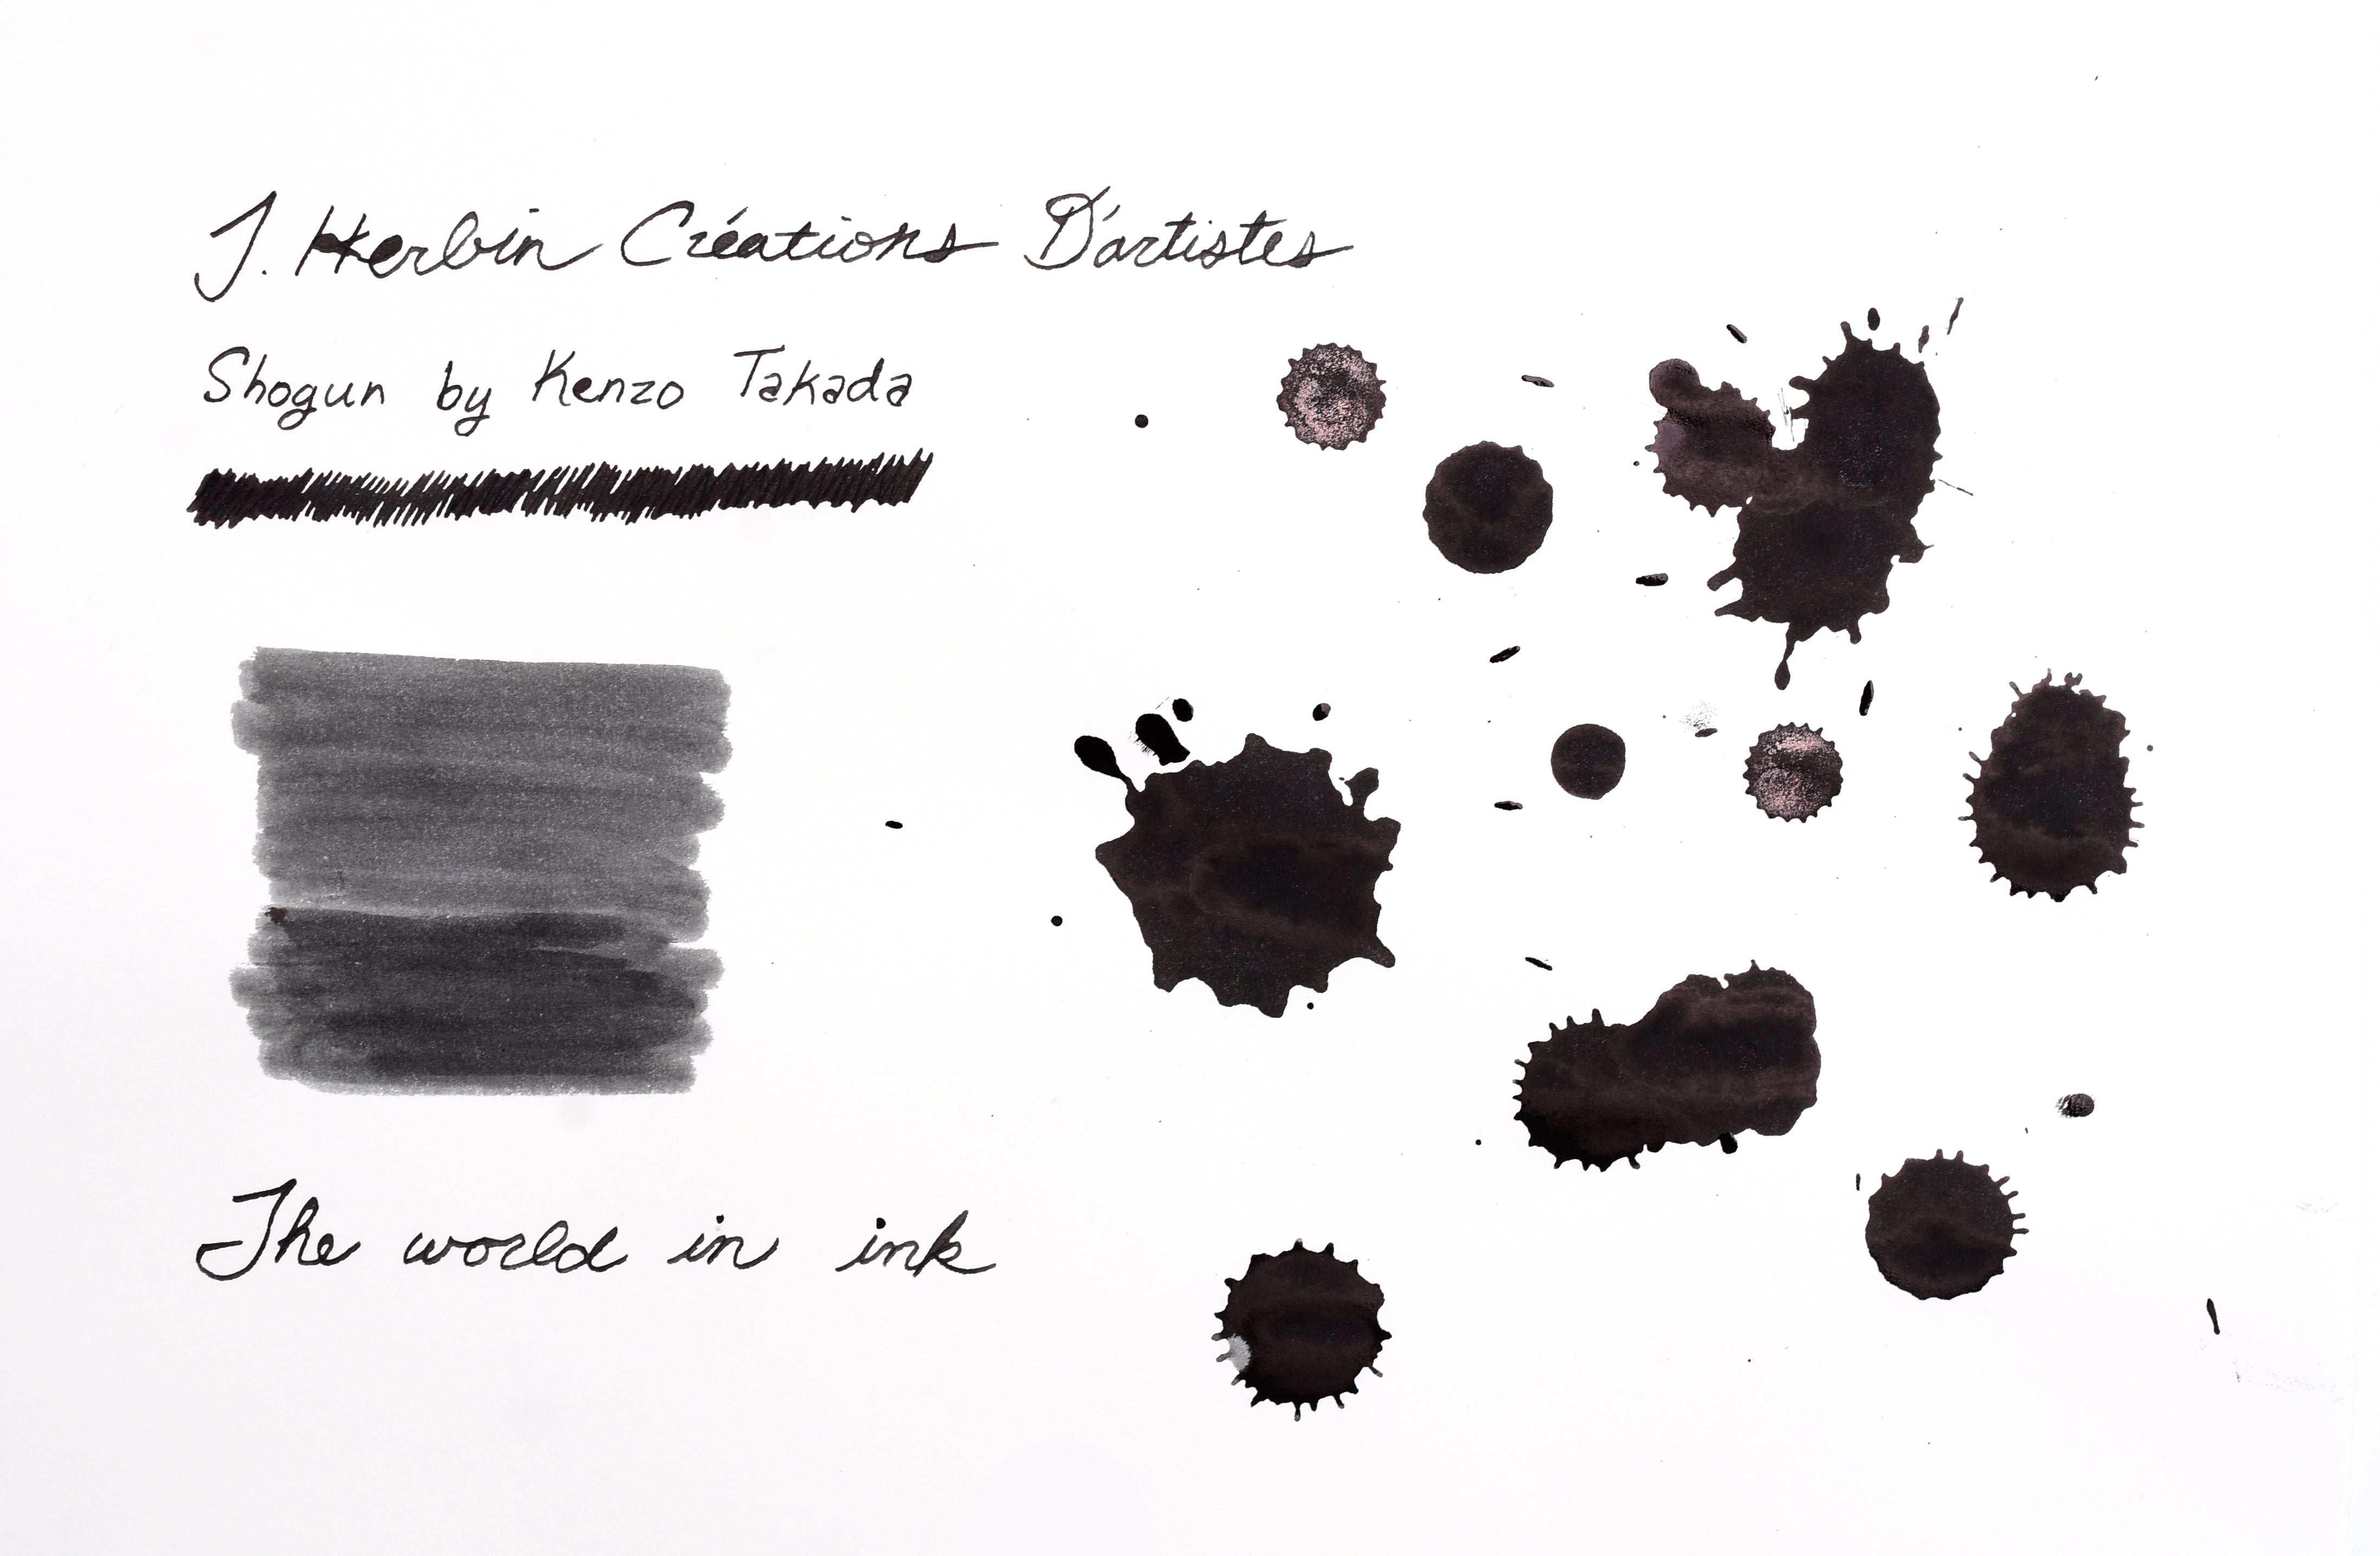 J. Herbin Créations D'artistes
Shogun by Kenzo Takada
The world in ink